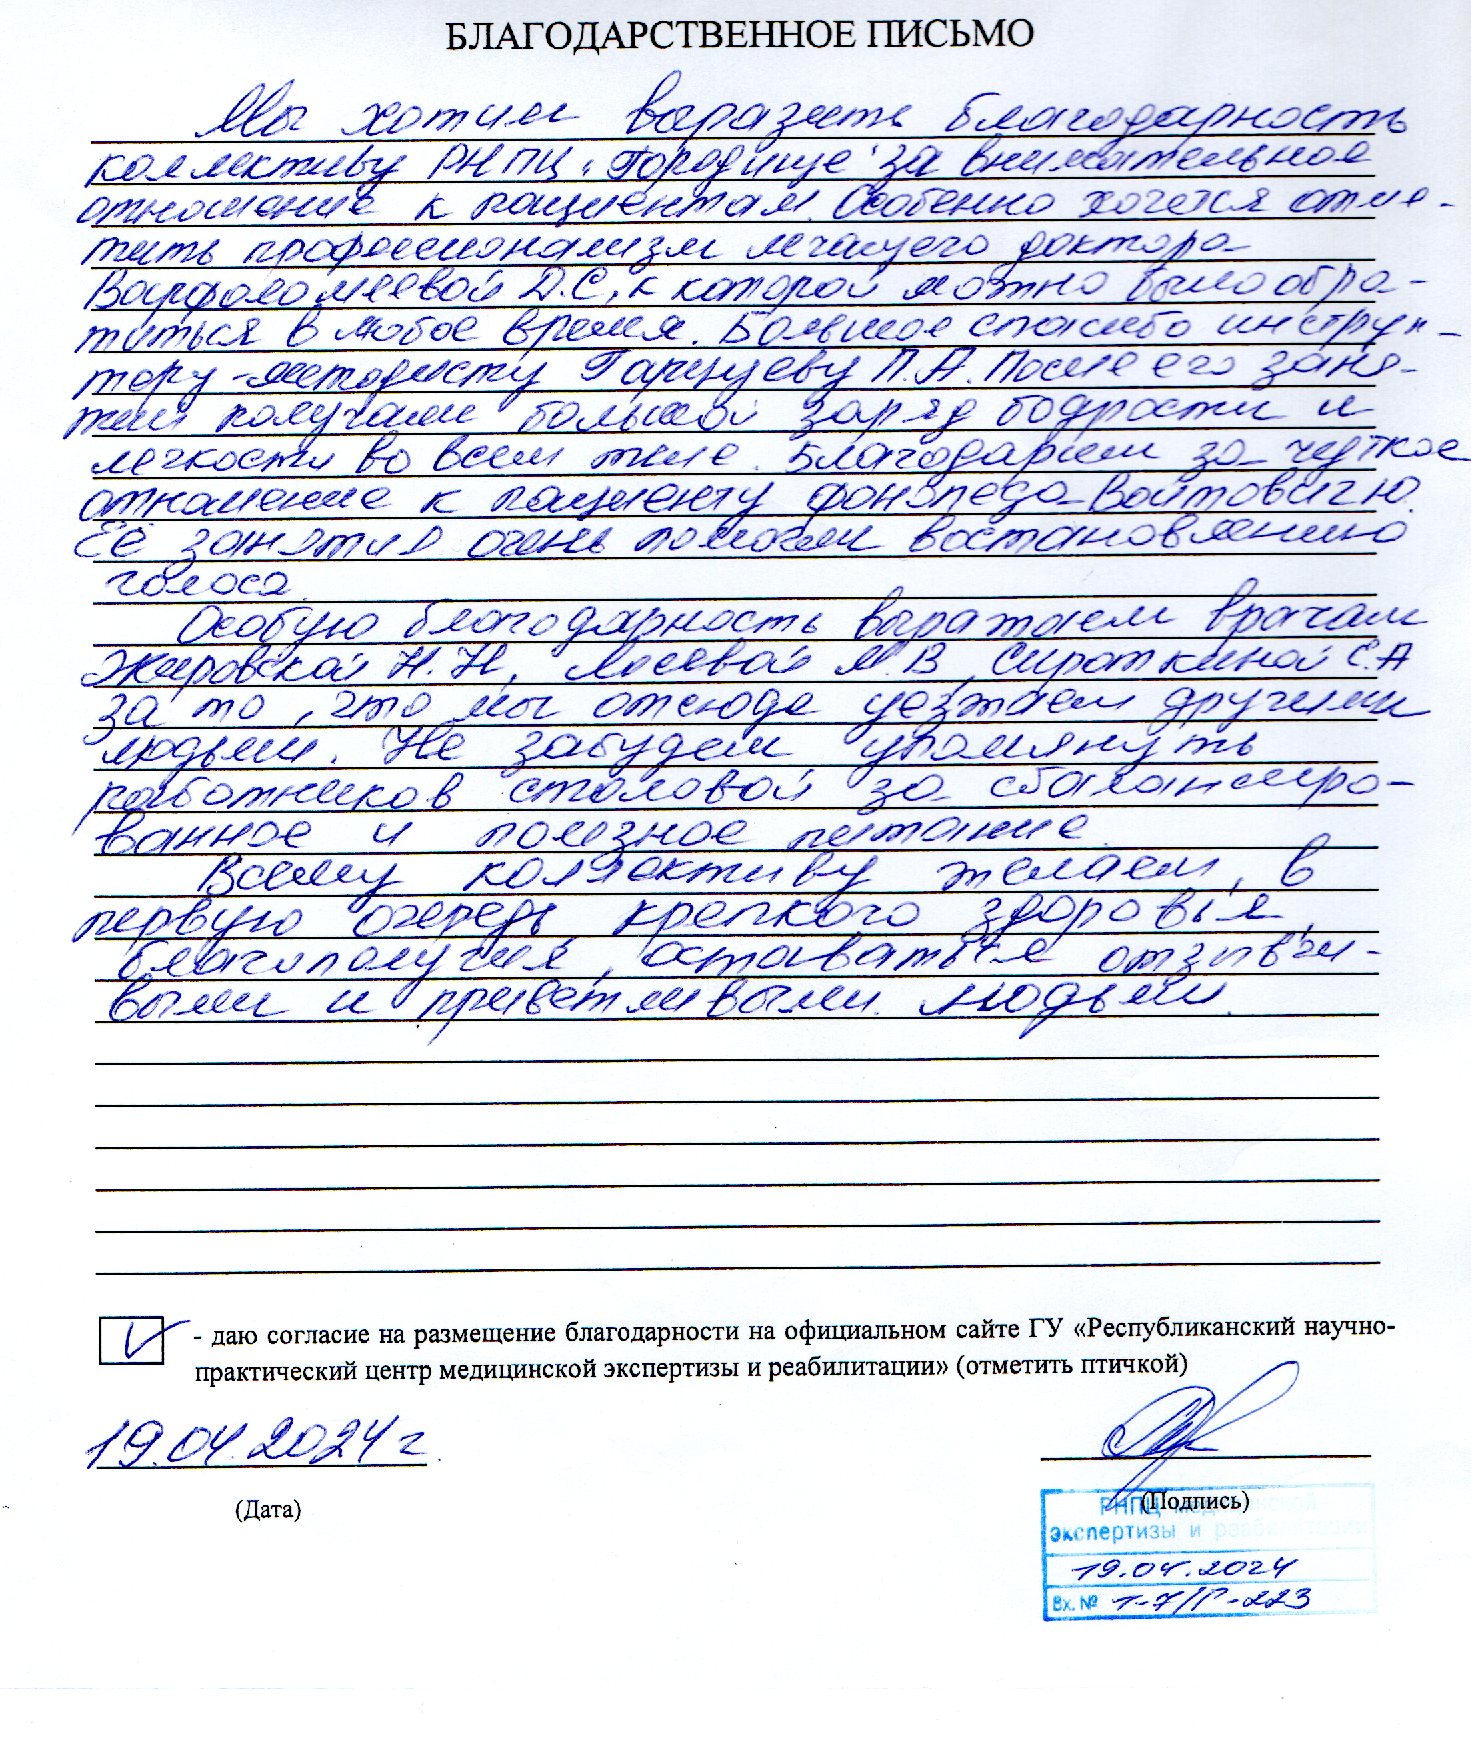 БЛАГОДАРСТВЕННОЕ ПИСЬМО
Мы хотим выразить благодарность
коллективу РНПЦ "Городище" за внимательное
отношение к пациентам. Особенно хочется отме-
тить профессионализм лечащего доктора
Варфоломеевой Д.С., к которой можно было обра-
титься в любое время. Большое спасибо инструк-
тору-методисту Гарцуеву П.А. После его заня-
тий получали большой заряд бодрости и
легкости во всем теле. Благодарим за чуткое
отношение к пациенту фонопеда Войтович Ю.
Её занятия очень помогли востановлению
голоса.
Особую благодарность выражаем врачам
Жировской Н.Н., Лосевой М.В, Сироткиной С.А
за то, что мы отсюда уезжаем другими
людьми. Не забудем упомянуть
работников столовой за сбалансиро-
ванное и полезное питание.
Всему коллективу желаем, в
первую очередь, крепкого здоровья,
благополучия, оставаться отзывчи-
выми и приветливыми людьми.
- даю согласие на размещение благодарности на официальном сайте ГУ «Республиканский научно-
практический центр медицинской экспертизы и реабилитации» (отметить птичкой)
19.04.2024 г.
(Дата)
(Подпись)
РНПЦ медицинской
экспертизы и реабилитации
19.04.2024
Вх. № 1-7/Г-223